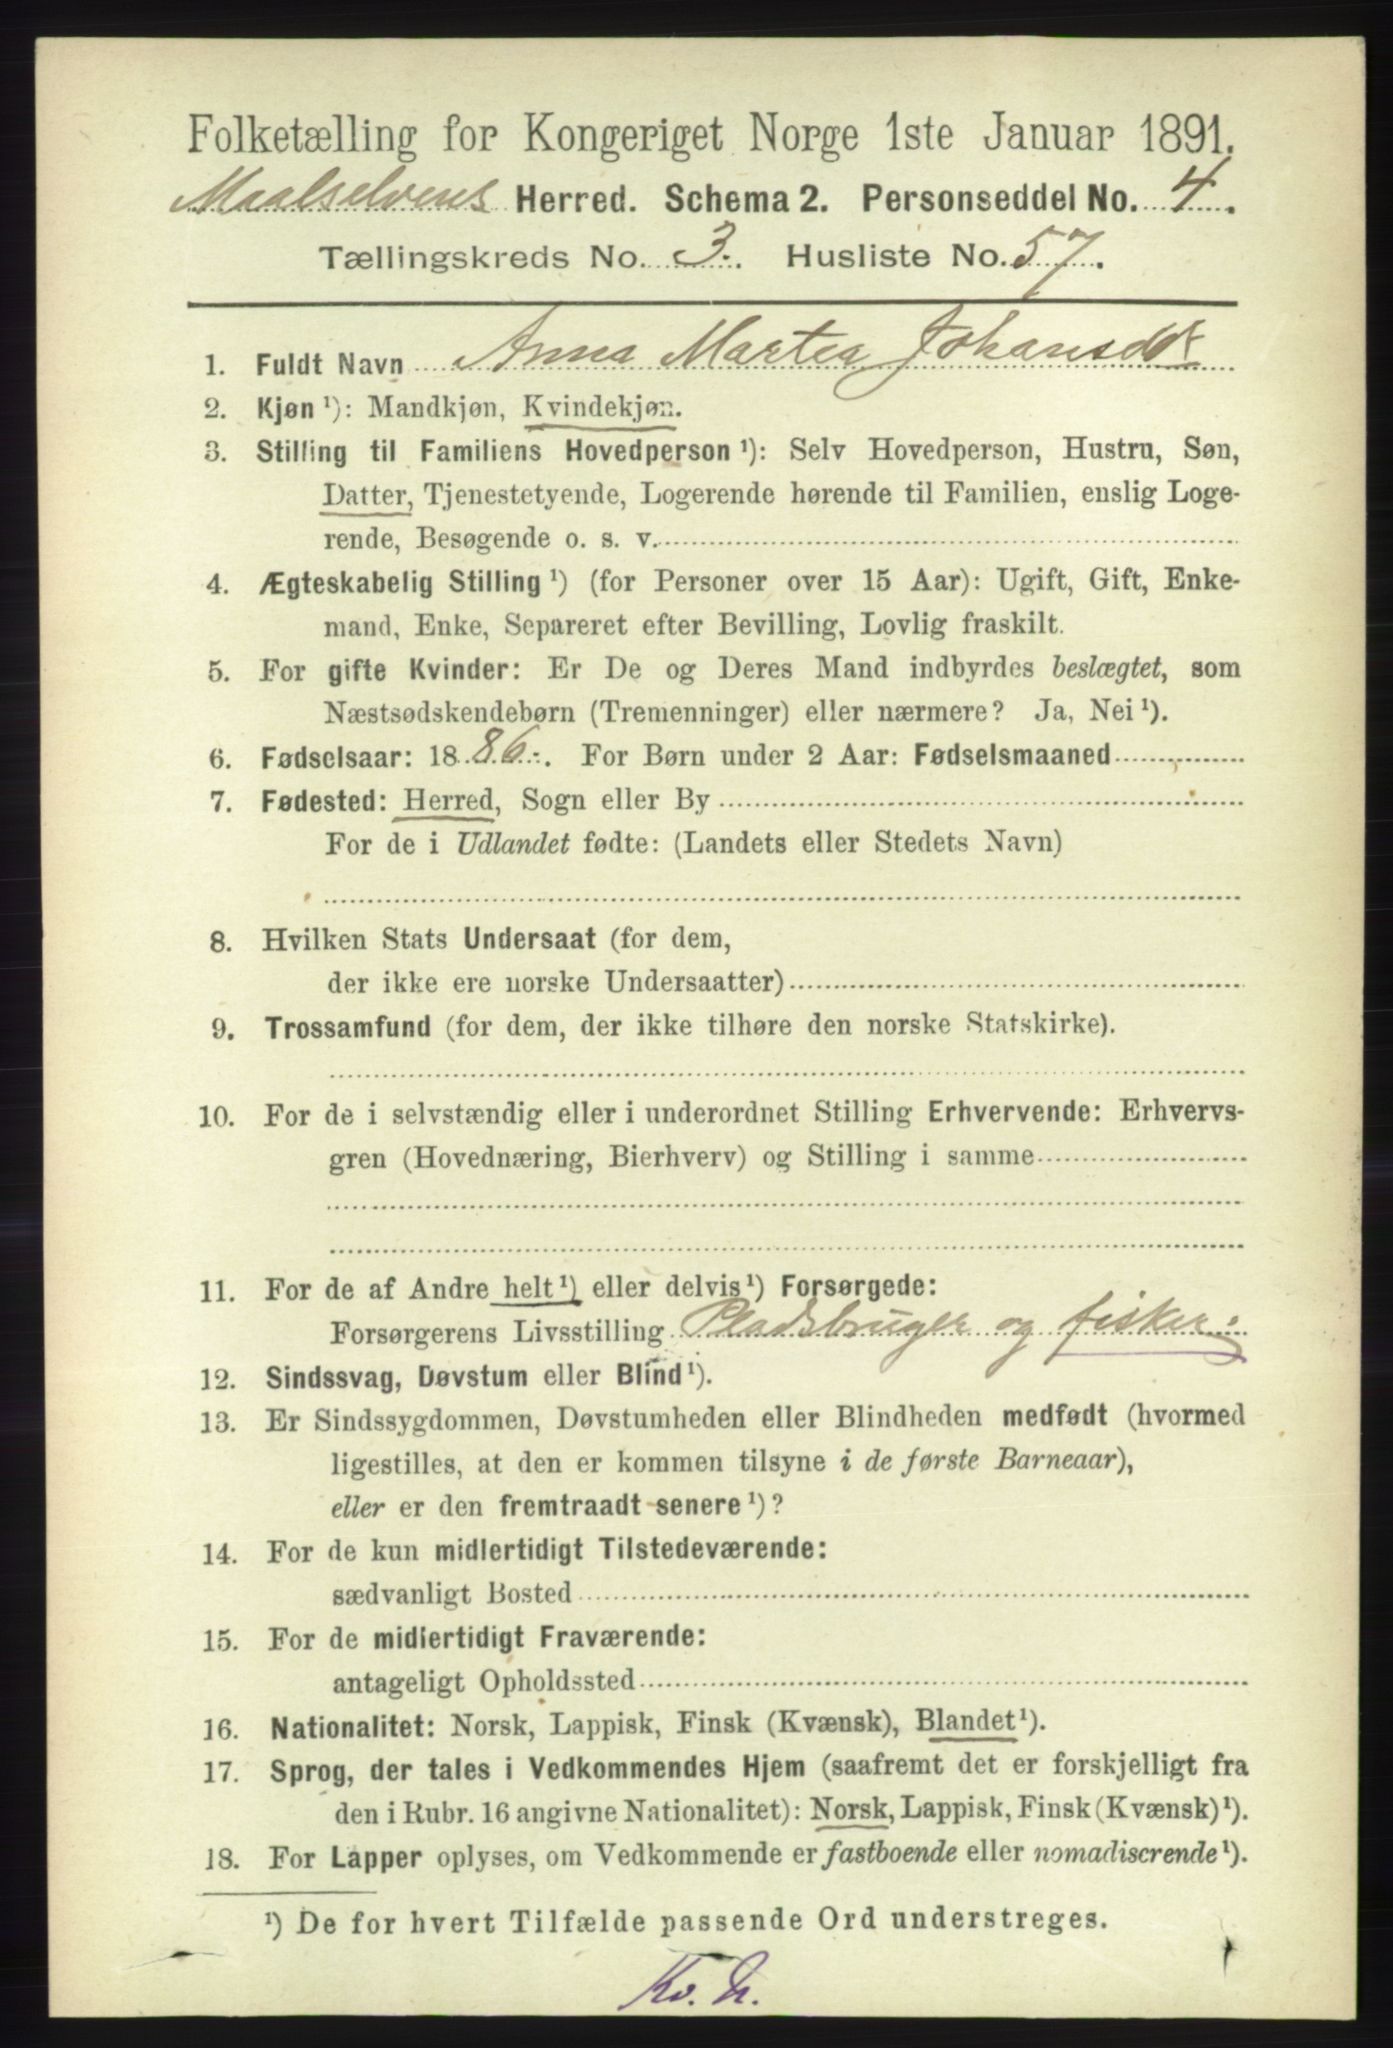 Folketælling for Kongeriget Norge 1ste Januar 1891.
Maalselvens Herred. Schema 2. Personseddel No. 4.
Tællingskreds No. 3. Husliste No. 57.
1. Fuldt Navn Anna Martea Johansdtr
2. Kjøn ¹): Mandkjøn, Kvindekjøn.
3. Stilling til Familiens Hovedperson ¹): Selv Hovedperson, Hustru, Søn,
Datter, Tjenestetyende, Logerende hørende til Familien, enslig Loge-
rende, Besøgende o. s. v.
4. Ægteskabelig Stilling ¹) (for Personer over 15 Aar): Ugift, Gift, Enke-
mand, Enke, Separeret efter Bevilling, Lovlig fraskilt.
5. For gifte Kvinder: Er De og Deres Mand indbyrdes beslægtet, som
Næstsødskendebørn (Tremenninger) eller nærmere? Ja, Nei ¹).
6. Fødselsaar: 1886. For Børn under 2 Aar: Fødselsmaaned
7. Fødested: Herred, Sogn eller By
For de i Udlandet fødte: (Landets eller Stedets Navn)
8. Hvilken Stats Undersaat (for dem,
der ikke ere norske Undersaatter)
9. Trossamfund (for dem, der ikke tilhøre den norske Statskirke).
10. For de i selvstændig eller i underordnet Stilling Erhvervende: Erhvervs-
gren (Hovednæring, Bierhverv) og Stilling i samme
11. For de af Andre helt ¹) eller delvis ¹) Forsørgede:
Forsørgerens Livsstilling Pladsbruger og fisker
12. Sindssvag, Døvstum eller Blind ¹).
13. Er Sindssygdommen, Døvstumheden eller Blindheden medfødt (hvormed
ligestilles, at den er kommen tilsyne i de første Barneaar),
eller er den fremtraadt senere ¹)?
14. For de kun midlertidigt Tilstedeværende:
sædvanligt Bosted
15. For de midlertidigt Fraværende:
antageligt Opholdssted
16. Nationalitet: Norsk, Lappisk, Finsk (Kvænsk), Blandet ¹).
17. Sprog, der tales i Vedkommendes Hjem (saafremt det er forskjelligt fra
den i Rubr. 16 angivne Nationalitet): Norsk, Lappisk, Finsk (Kvænsk) ¹).
18. For Lapper oplyses, om Vedkommende er fastboende eller nomadiserende ¹).
¹) De for hvert Tilfælde passende Ord understreges.
Kv. N.